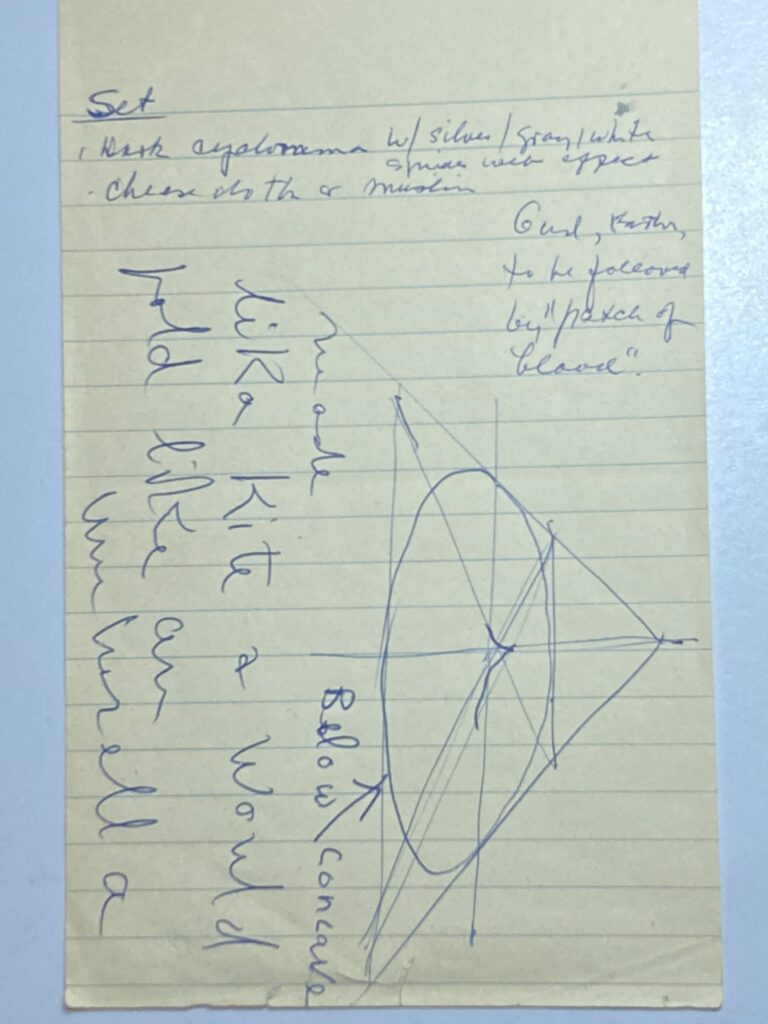 Set
Dark cyclorama w/ silver/gray/white
spider web effect
- Cheese cloth or muslin
to be followed
by "patch of
blood".
made
like kite &  would
fold like an
umbrella
Below concave